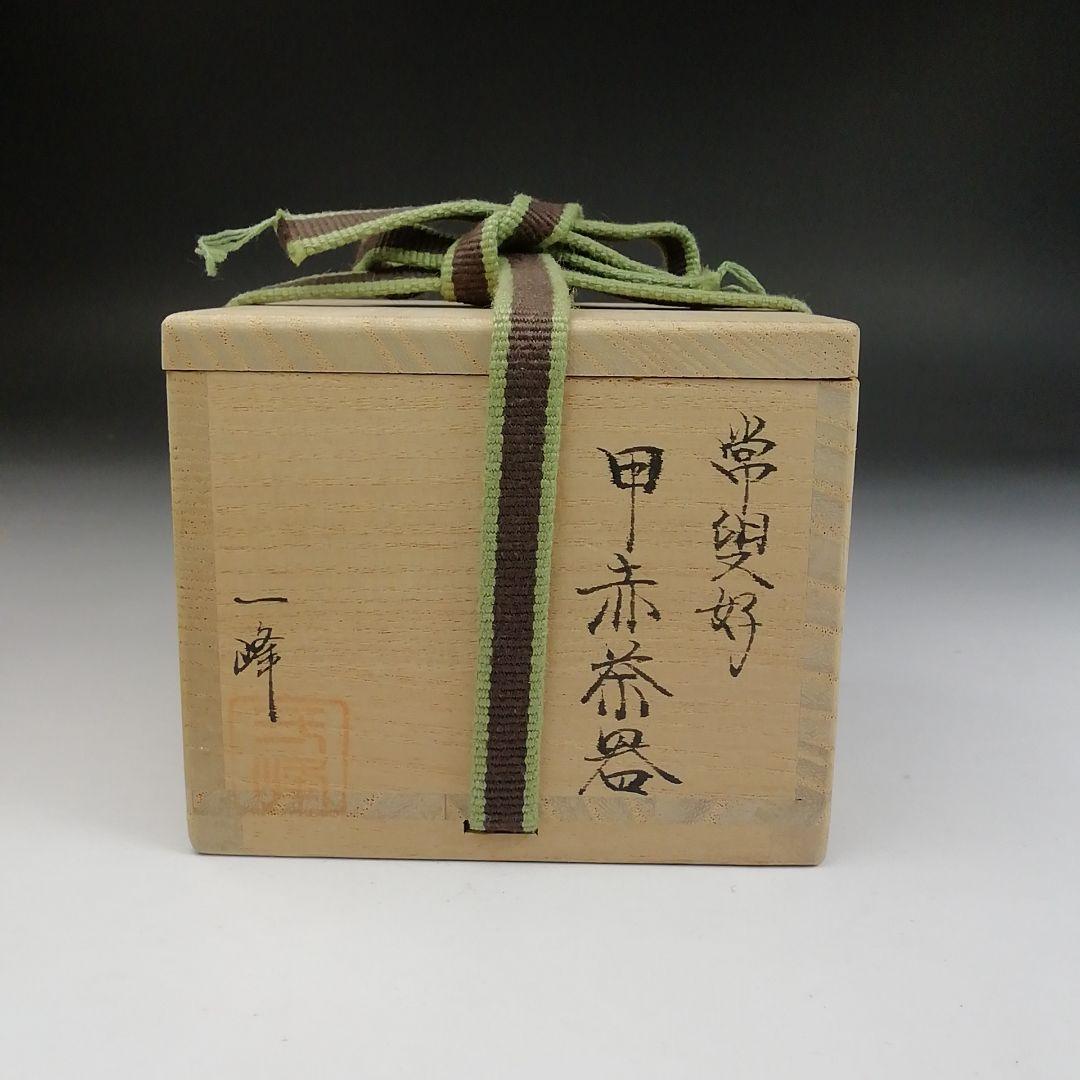 常叟好
甲赤茶器
一峰